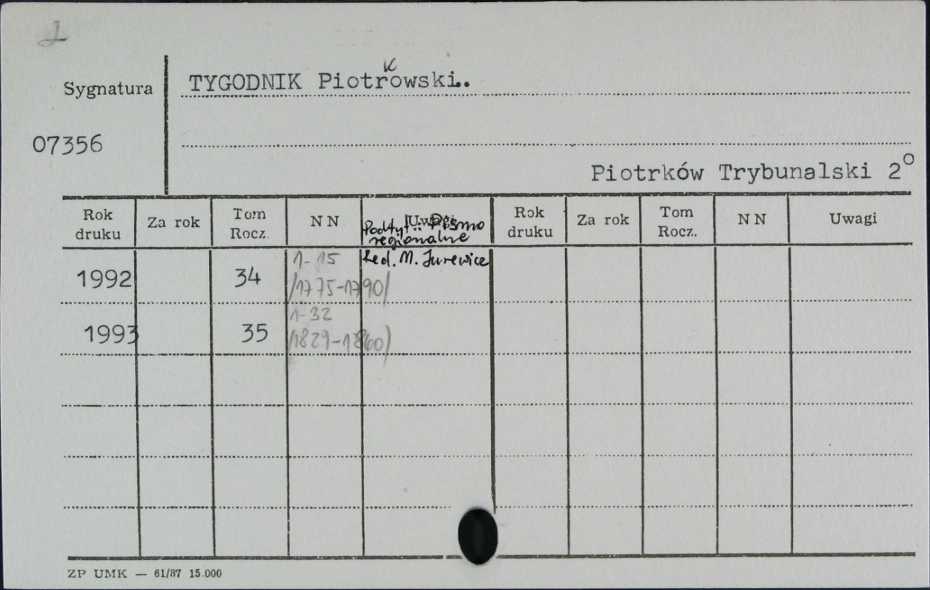 1
Sygnatura
TYGODNIK Piotrkowski.
07356
Piotrków Trybunalski 2°
Rok druku Za rok Tom Rocz. NN Uwagi Rok druku Za rok Tom Rocz. NN Uwagi
Podtyt.: Pismo
regionalne
Red. M. Jurewicz
1992 34 1-15
/1775-1790/
1993 35 1-32
/1829-1860/
ZP UMK — 61/87 15.000